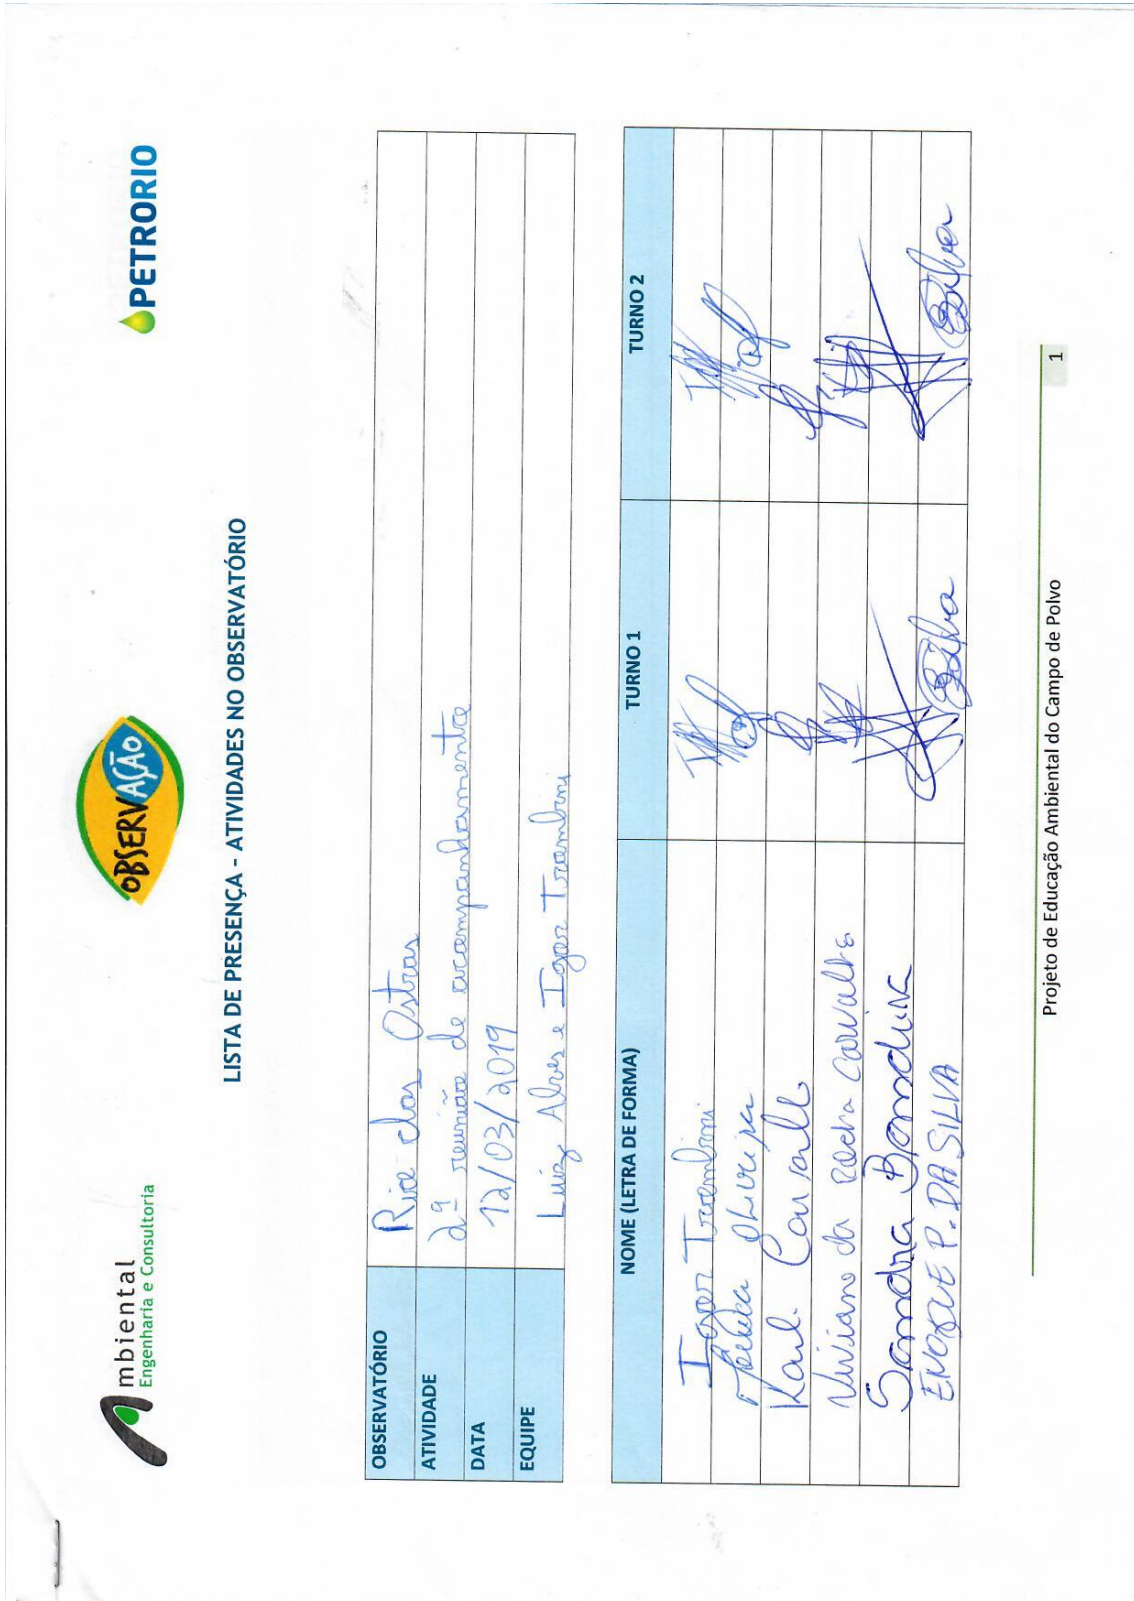 Ambiental
Engenharia e Consultoria
OBSERVAÇÃO
PETRORIO
LISTA DE PRESENÇA - ATIVIDADES NO OBSERVATÓRIO
OBSERVATÓRIO Rio das Ostras
ATIVIDADE 2ª reunião de acompanhamento
DATA 12/03/2019
EQUIPE Luiz Alves e Igor Trambini
NOME (LETRA DE FORMA) TURNO 1 TURNO 2
Igor Trambini
Oliveira
Viviane da Rocha Carvalho
Sandra
ENOQUE P. DA SILVA Silva Silva
Projeto de Educação Ambiental do Campo de Polvo 1